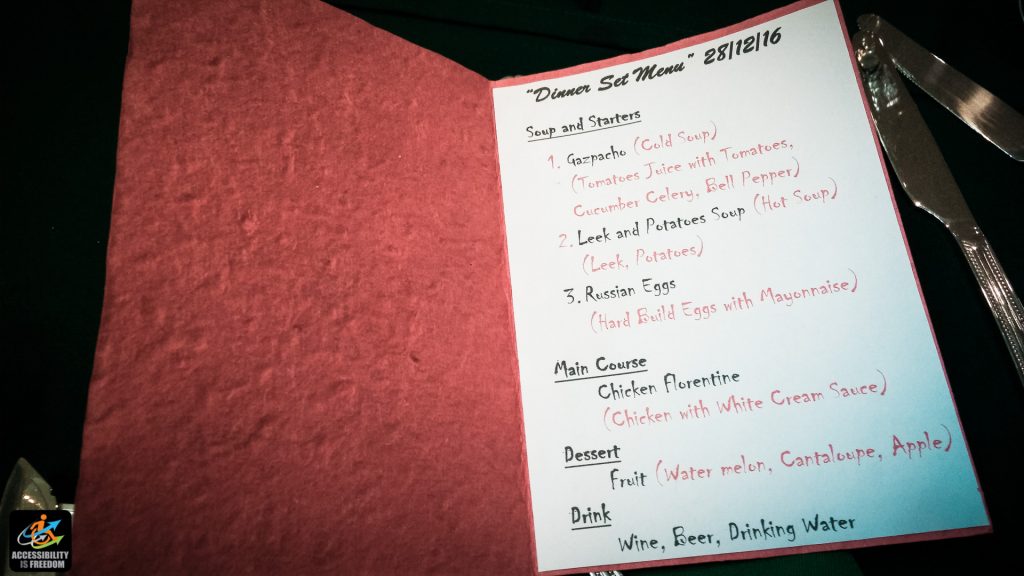 "Dinner Set Menu" 28/12/16
Soup and Starters
1. Gazpacho (Cold Soup)
(Tomatoes Juice with Tomatoes,
Cucumber Celery, Bell Pepper)
2. Leek and Potatoes Soup (Hot Soup)
(Leek, Potatoes)
3. Russian Eggs
(Hard Build Eggs with Mayonnaise)
Main Course
Chicken Florentine
(Chicken with White Cream Sauce)
Dessert
Fruit (Water melon, Cantaloupe, Apple)
Drink
Wine, Beer, Drinking Water
ACCESSIBILITY
IS FREEDOM